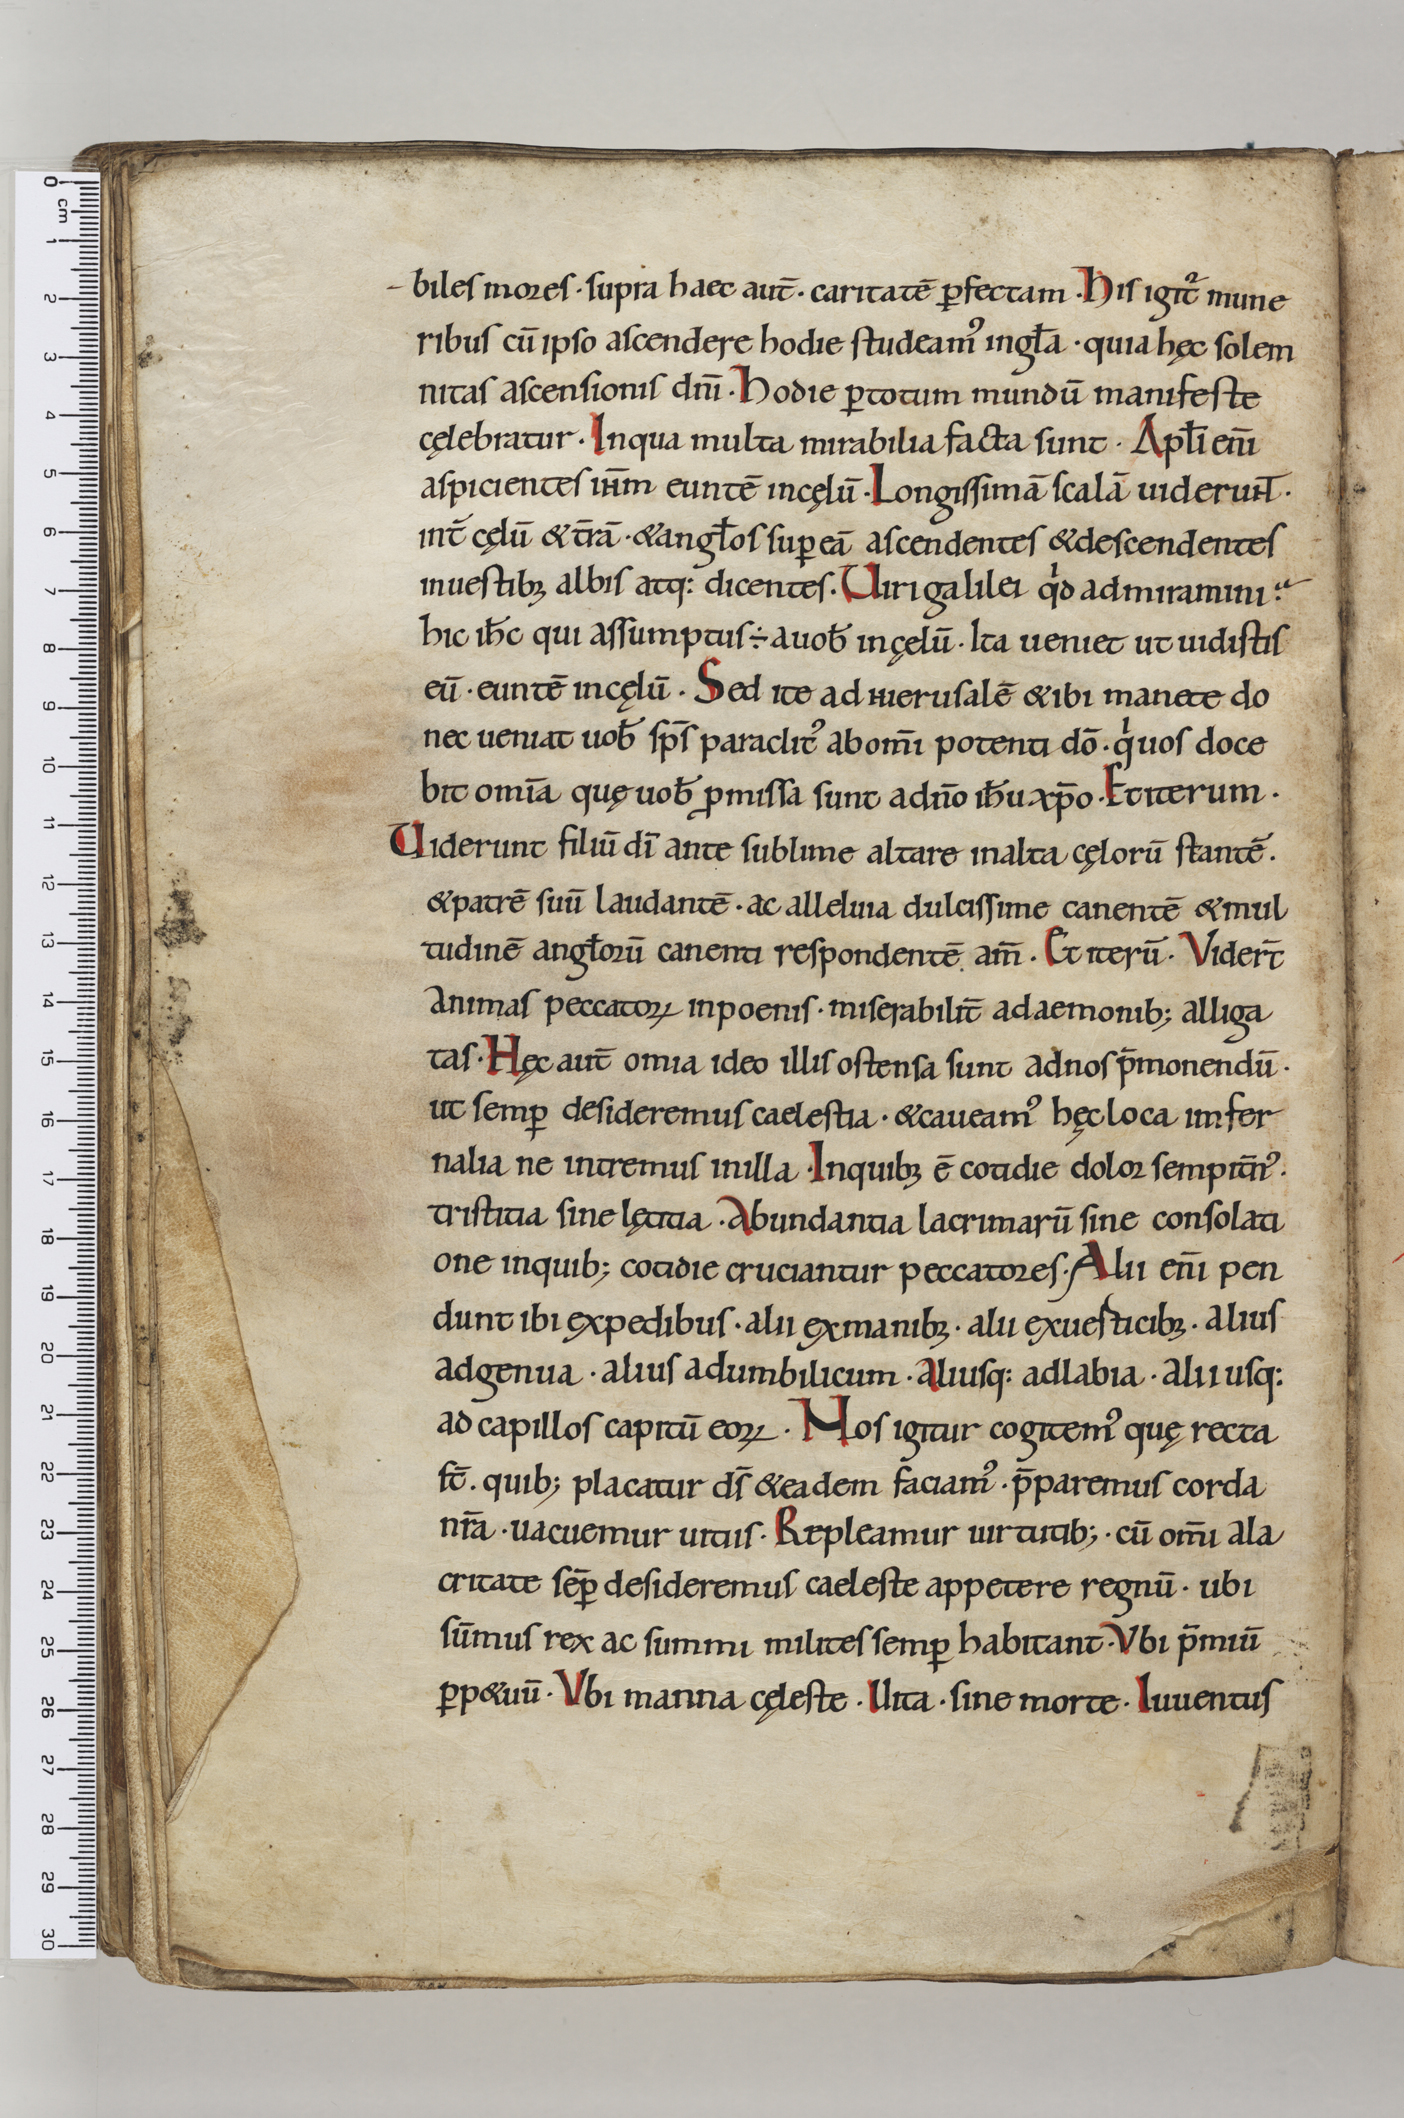 biles mores · supra haec aut̄ · caritatē ꝑfectam · His igit᷑ mune
ribus cū ipso ascendere hodie studeamꝰ in gl̄a · quia hęc solem
nitas ascensionis dn̄i · Hodie ꝑ totum mundū manifeste
cęlebratur · In qua multa mirabilia facta sunt · Apl̄i eni̅
aspicientes ihm̄ euntē in cęlū · Longissimā scalā uiderunt ·
int̄ cęlū & t̄rā · & angl̄os suꝑ eā ascendentes & descendentes
in uestibꝫ albis atq: dicentes · Uiri galilei qͥd admiramini ·
hic ih̄c qui assumptus ÷ a uob̄ in cęlū · Ita ueniet ut uidistis
eū · euntē in cęlū · Sed ite ad hierusalē & ibi manete do
nec ueniat uob̄ sp̄s paraclitꝰ ab om̄i potenti dō · qͥ uos doce
bit omīa quę uob̄ ꝓmissa sunt a dn̄o ih̄u xp̄o · Et iterum ·
Uiderunt filiū dī ante sublime altare in alta cęlorū stantē ·
& patrē suū laudantē · ac alleluia dulcissime canentē & mul
tudinē angl̄orū canenti respondentē am̄ · Et iterū · Vider̄t
animas peccatoꝝ in poenis · miserabilit̄ a daemonib; alliga
tas · Hęc aut̄ omia ideo illis ostensa sunt ad nos p̄monendū ·
ut semꝑ desideremus caelestia · & caueamꝰ hęc loca imfer
nalia ne intremus in illa · In quibꝫ ē cotidie dolor sempit̄nꝰ ·
tristitia sine lętitia · Abundantia lacrimarū sine consolati
one in quib; cotidie cruciantur peccatores · Alii eni̅ pen
dunt ibi ex pedibus · alii ex manibꝫ · alii ex uesticibꝫ · alius
ad genua · alius ad umbilicum · aliusq: ad labia · alii usq:
ad capillos capitū eoꝝ · Nos igitur cogitemꝰ quę recta
st̄ · quib; placatur ds̄ & eadem faciamꝰ · p̄paremus corda
nr̄a · uacuemur uitiis · Repleamur uirtutib; · cū om̄i ala
critate sēꝑ desideremus caeleste appetere regnū · ubi
sūmus rex ac summi milites semꝑ habitant · Vbi p̄miū
ꝑp&uū · Vbi manna cęleste · Uita · sine morte · Iuuentus
0 cm
1
2
3
4
5
6
7
8
9
10
11
12
13
14
15
16
17
18
19
20
21
22
23
24
25
26
27
28
29
30